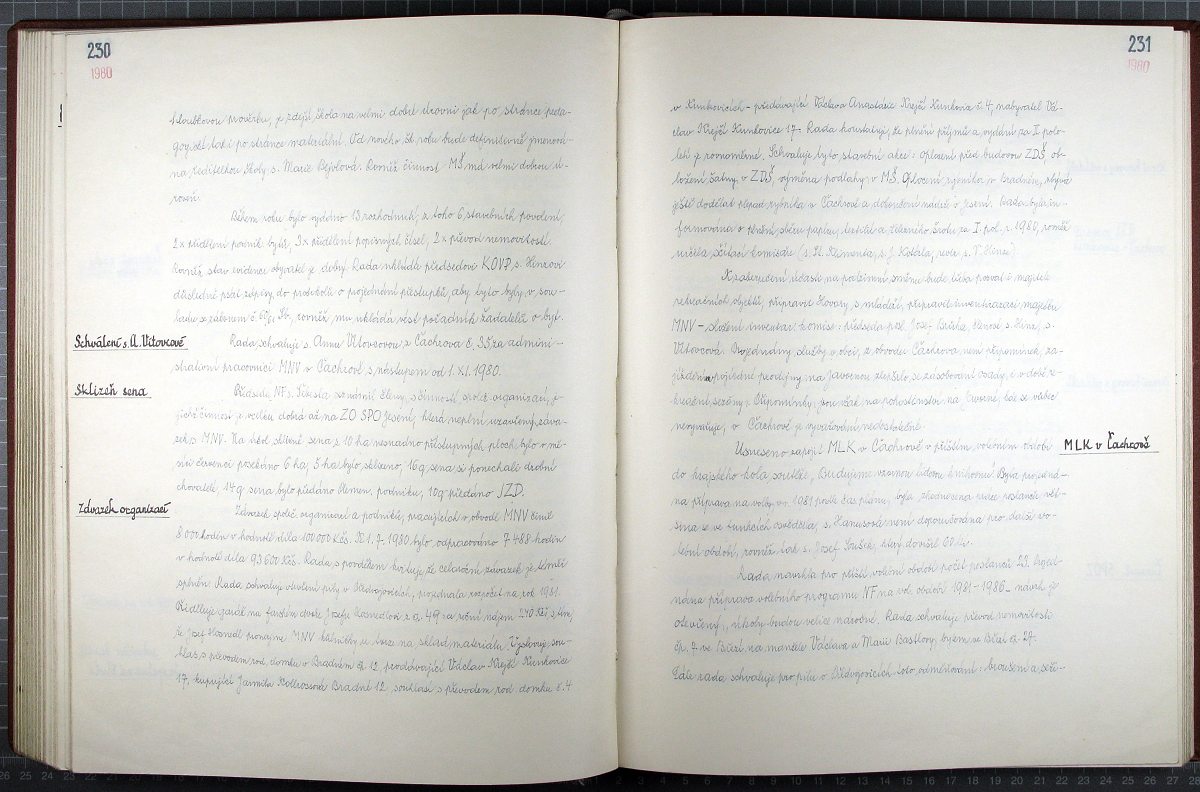 230
1980
hloubkovou prověrku, je zdejší škola na velmi dobré úrovni jak po stránce peda-
gog. tak i po stránce materiální. Od nového šk. roku bude definitivně jmenová-
na ředitelkou školy s. Marie Rejtlová. Rovněž činnost MŠ má velmi dobrou ú-
roveň.
Během roku bylo vydáno 13 rozhodnutí, z toho 6 stavebních povolení,
2x přidělení bytů, 3x přidělení popisných čísel, 2x převod nemovitostí.
Rovněž stav evidence obyvatel je dobrý. Rada ukládá předsedovi KOVP s. Henzovi
důsledně psát zápisy, do protokolů o projednání přestupků, aby byly v sou-
ladu se zákonem č. 60 Sb., rovněž mu ukládá vést pořadník žadatelů o byt.
Schválení s. A. Vítovcové
Rada schvaluje s. Annu Vítovcovou z Čachrova č. 35 za admini-
strativní pracovnici MNV v Čachrově s nástupem od 1. XI. 1980.
Sklizeň sena
Předseda NF s. seznámil členy s činností společ. organizací, je-
jichž činnost je vcelku dobrá až na ZO SPO Jesení, která neplní uzavřený záva-
zek s MNV. Na úkol sklizně sena s 10 ha nesnadno přístupných ploch, bylo v mě-
síci červenci posekáno 6 ha, 5 ha bylo sklizeno, 16 q sena si ponechali drobní
chovatelé, 14 q sena bylo předáno plemen. podniku, 10 q předáno JZD.
Závazek organizací
Závazek společ. organizací a podniků, pracujících v obvodě MNV činil
8 000 hodin v hodnotě díla 100 000 Kčs. K 1. 7. 1980 bylo odpracováno 7 488 hodin
v hodnotě díla 93 600 Kčs. Rada s povděkem kvituje, že celoroční závazek je téměř
splněn. Rada schvaluje otevření pily v Předvojovicích, projednala rozpočet na rok 1981.
Přiděluje garáž na farském dvoře Josefu Kosmedlovi z č. 49 za roční nájem 240 Kčs, s tím,
že Josef pronajme MNV kůlničky u fary na sklad materiálu. Vyslovuje sou-
hlas s převodem rod. domku v Bradném čp. 12, prodávající Václav Krejčí Kunkovice
17, kupující Jarmila Bradné 12, souhlasí s převodem rod. domku č. 4
231
1980
v Kunkovicích - předávající Václava Anastázie Krejčí Kunkovice č. 4, nabyvatel Vá-
clav Krejčí Kunkovice 17. Rada konstatuje, že plnění příjmů a vydání za I. polo-
letí je rovnoměrné. Schvaluje tyto stavební akce: oplocení před budovou ZDŠ, ob-
ložení šatny v ZDŠ, výměna podlahy v MŠ. Oplocení rybníka v Bradném, zbývá
ještě dodělat přepad rybníka v Čachrově a dokončení nádrže v Jesení. Rada byla in-
formována o plnění sběru papíru, textilií a železného šrotu za I. pol. r. 1980, rovněž
určila sčítací komisaře (s. H. Klimenta, s. J. Kotála, revis. s. V. Henze).
K zabezpečení účasti na podzimní směnu bude třeba pozvat i majitele
rekreačních objektů, připravit hovory s mládeží, připravit inventarizaci majetku
MNV - složení inventur. komise: předseda posl. Josef Brůha, členové s. Henz, s.
Vítovcová. Projednány služby v obci, z obvodu Čachrova není připomínek, za-
jíždění pojízdné prodejny na Javornou zlepšilo se zásobování osady, i v době re-
kreační sezóny. Připomínky jsou však na pohostinství na Javorné, kde se vůbec
nevyvařuje, v Čachrově je vyvařování nedostatečné.
MLK v Čachrově
Usneseno zapojit MLK v Čachrově v příštím volebním období
do krajského kola soutěže „Budujeme vzornou lidovou knihovnu“. Byla projedná-
na příprava na volby v r. 1981 podle čas. plánu, byla zhodnocena práce poslanců, vět-
šina se ve funkcích osvědčila, s. Hanusová není doporučována pro další vo-
lební období, rovněž tak s. Josef Soušek, který dovršil 60 let.
Rada navrhla pro příští volební období počet poslanců 23. Projed-
nána příprava volebního programu NF na vol. období 1981-1986 - návrh je
otevřený, úkoly budou velice náročné. Rada schvaluje převod nemovitosti
čp. 7 ve Březí, na manžele Václava a Marii Bastlovy, bytem ve Březí čp. 27.
Dále rada schvaluje pro pilu v Předvojovicích toto odměňování: broušení a seři-